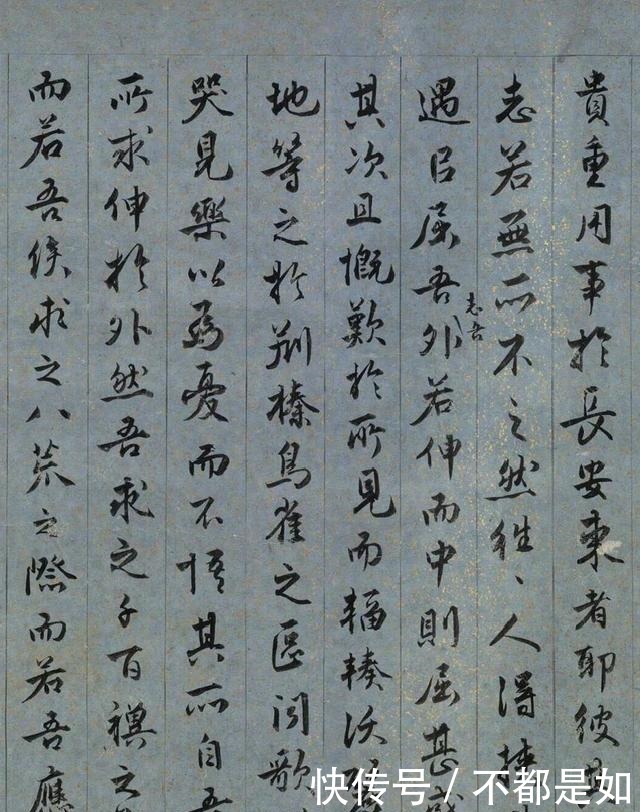 貴重用事於長安東者耶彼其
志若無所不之然往〻人得持
遇㠯屈吾外志吾若伸而中則屈甚
其次且慨歎於所見而輻輳沃
地等之於荆榛鳥雀之區聞歌
哭見樂以為憂而不悟其所自吾
所求伸於外然吾求之千百禩之
而若吾俟求之八荒之際而若吾應
快传号/不都是如